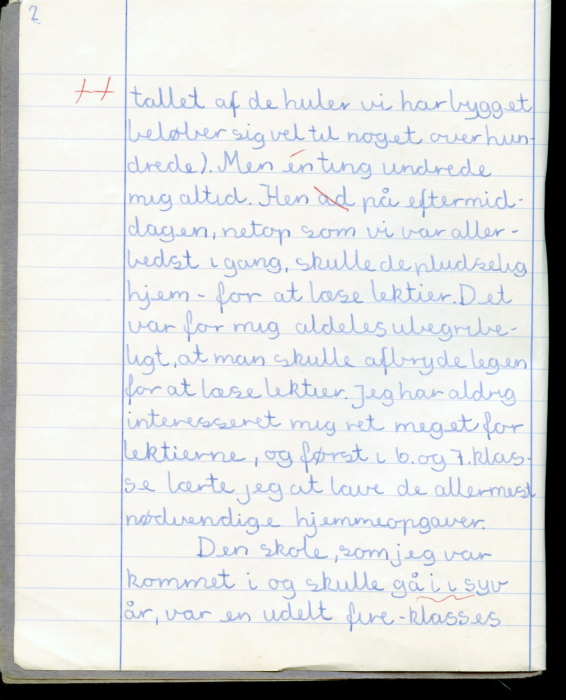 2
tallet af de huler vi har bygget
beløber sig vel til noget over hun-
drede). Men én ting undrede
mig altid. Hen ad på eftermid-
dagen, netop som vi var aller-
bedst i gang, skulle de pludselig
hjem - for at læse lektier. Det
var for mig aldeles ubegribe-
ligt, at man skulle afbryde legen
for at læse lektier. Jeg har aldrig
interesseret mig ret meget for
lektierne, og først i 6. og 7. klas-
se lærte jeg at lave de allermest
nødvendige hjemmeopgaver.
Den skole, som jeg var
kommet i og skulle gå i i syv
år, var en udelt fire-klasses